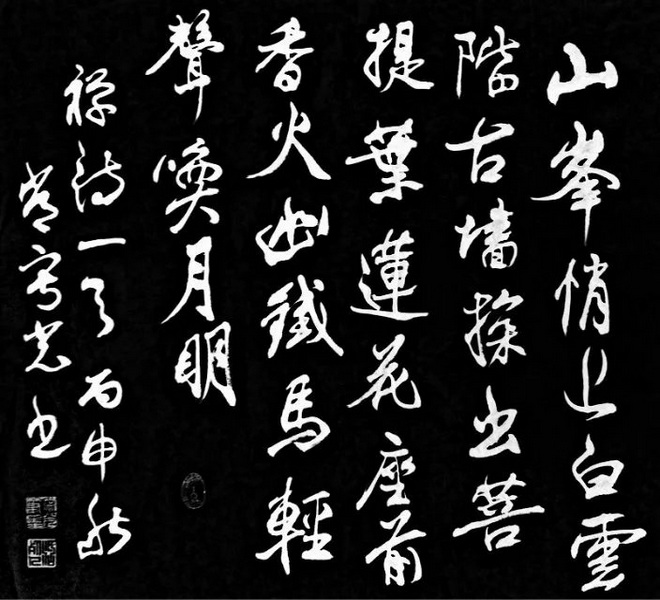 山峯悄上白雲
階古墙探出菩
提葉蓮花座前
香火幽鐵馬輕
聲喚月明
禪詩一首丙申秋
書